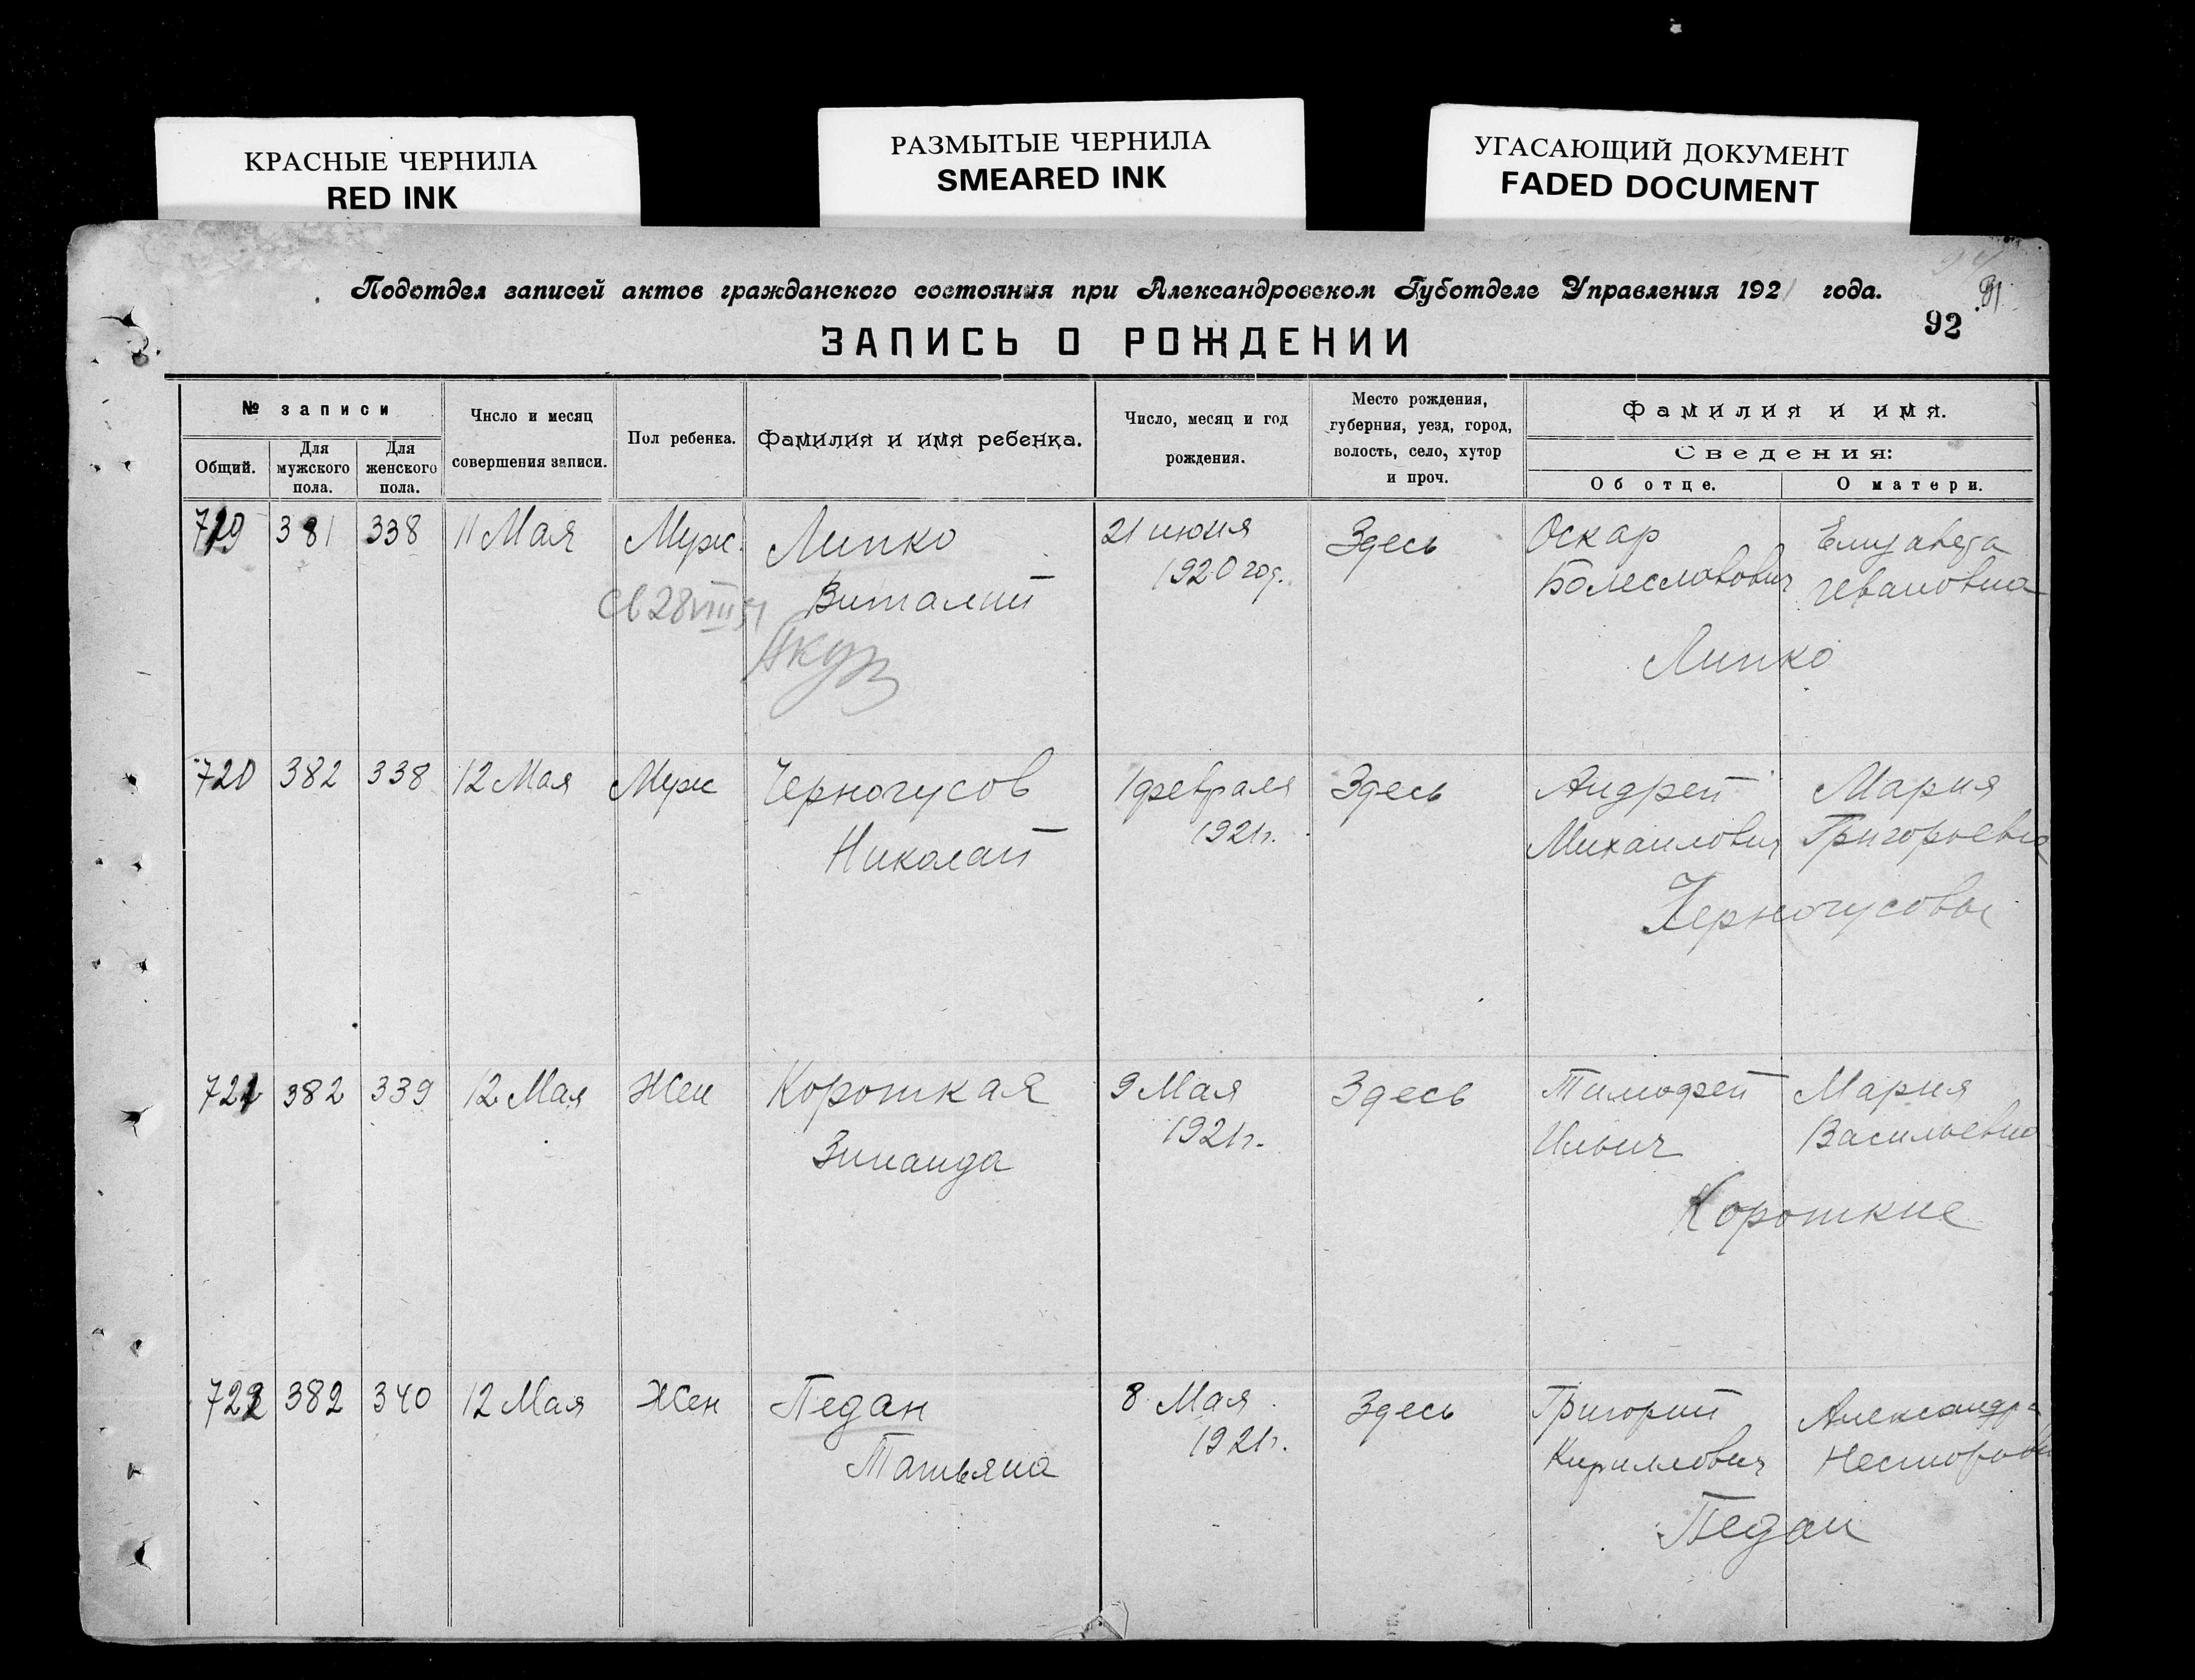 КРАСНЫЕ ЧЕРНИЛА
RED INK
РАЗМЫТЫЕ ЧЕРНИЛА
SMEARED INK
УГАСАЮЩИЙ ДОКУМЕНТ
FADED DOCUMENT
Подотдел записей актов гражданского состояния при Александровском Губотделе Управления 1921 года.
92
ЗАПИСЬ О РОЖДЕНИИ
№ записи
Общий.
Для мужского пола.
Для женского пола.
Число и месяц
совершения записи.
Пол ребенка.
Фамилия и имя ребенка.
Число, месяц и год
рождения.
Место рождения,
губерния, уезд, город,
волость, село, хутор
и проч.
Фамилия и имя.
Сведения:
Об отце.
О матери.
719 381 338 11 Мая Муж. Липко 21 июня Здесь Оскар Елизавета
Виталий 1920 год. Болеславович Ивановна
св 28 VIII 51
Липко
720 382 338 12 Мая Муж Черногусов 1 февраля Здесь Андрей Мария
Николай 1921г. Михайлович Григорьевна
Черногусовы
721 382 339 12 Мая Жен Короткая 9 Мая Здесь Тимофей Мария
Зинаида 1921г. Ильич Васильевна
Короткие
722 382 340 12 Мая Жен Педан 8 Мая Здесь Григорий Александра
Татьяна 1921г. Кириллович Несторовн
Педан